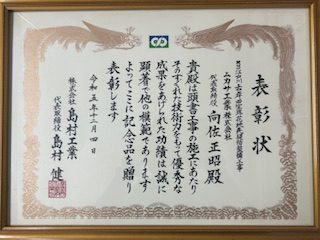 表彰状
ニカサ工業株式会社
代表取締役 向佐正昭殿
貴殿は頭書工事の施工にあたり
そのすぐれた技術力をもって優秀な
成果をあげられた功績は誠に
顕著で他の模範であります
よってここに記念品を贈り
表彰します
令和五年十二月四日
株式会社 島村工業
代表取締役 島村健